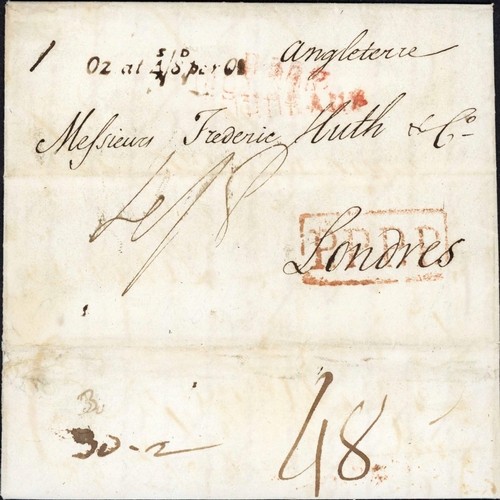 1
Oz at 4/8 per Oz
Angleterre
Messieurs Frederic Huth & Co
4/8
P.P.P.P.
Londres
30-2
48